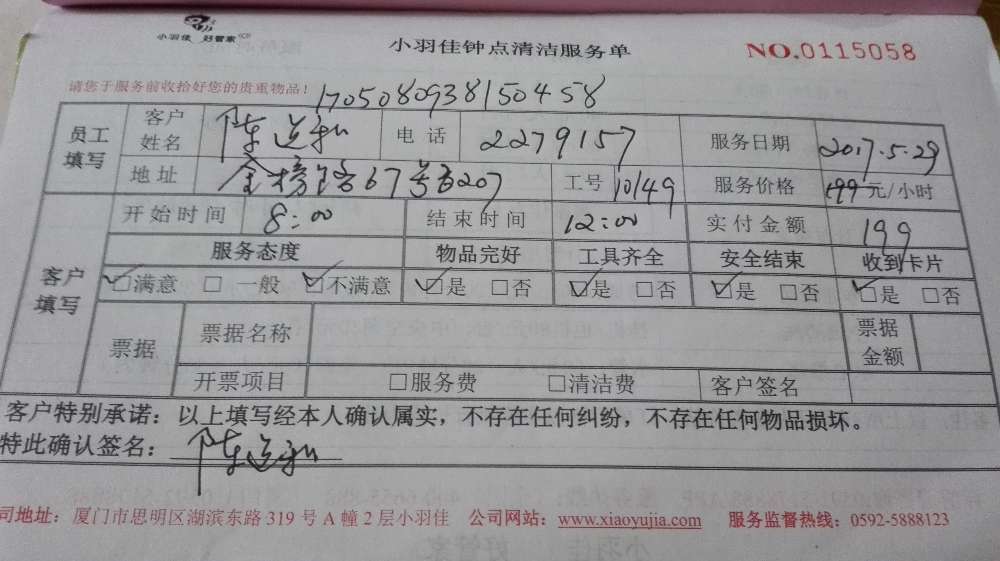 小羽佳 好管家
小羽佳钟点清洁服务单
NO.0115058
请您于服务前收拾好您的贵重物品!
170508093815045 8
员工填写 客户姓名 陈送私 电话 2279157 服务日期 2017.5.29
地址 金榜路67号 207 工号 10149 服务价格 199元/小时
客户填写 开始时间 8:00 结束时间 12:00 实付金额 199
服务态度 物品完好 工具齐全 安全结束 收到卡片
☑满意 □一般 ☑不满意 ☑是 □否 ☑是 □否 ☑是 □否 ☑是 □否
票据 票据名称 票据金额
开票项目 □服务费 □清洁费 客户签名
客户特别承诺：以上填写经本人确认属实，不存在任何纠纷，不存在任何物品损坏。
特此确认签名： 陈送私
司地址：厦门市思明区湖滨东路319号A幢2层小羽佳 公司网站：www.xiaoyujia.com 服务监督热线：0592-5888123